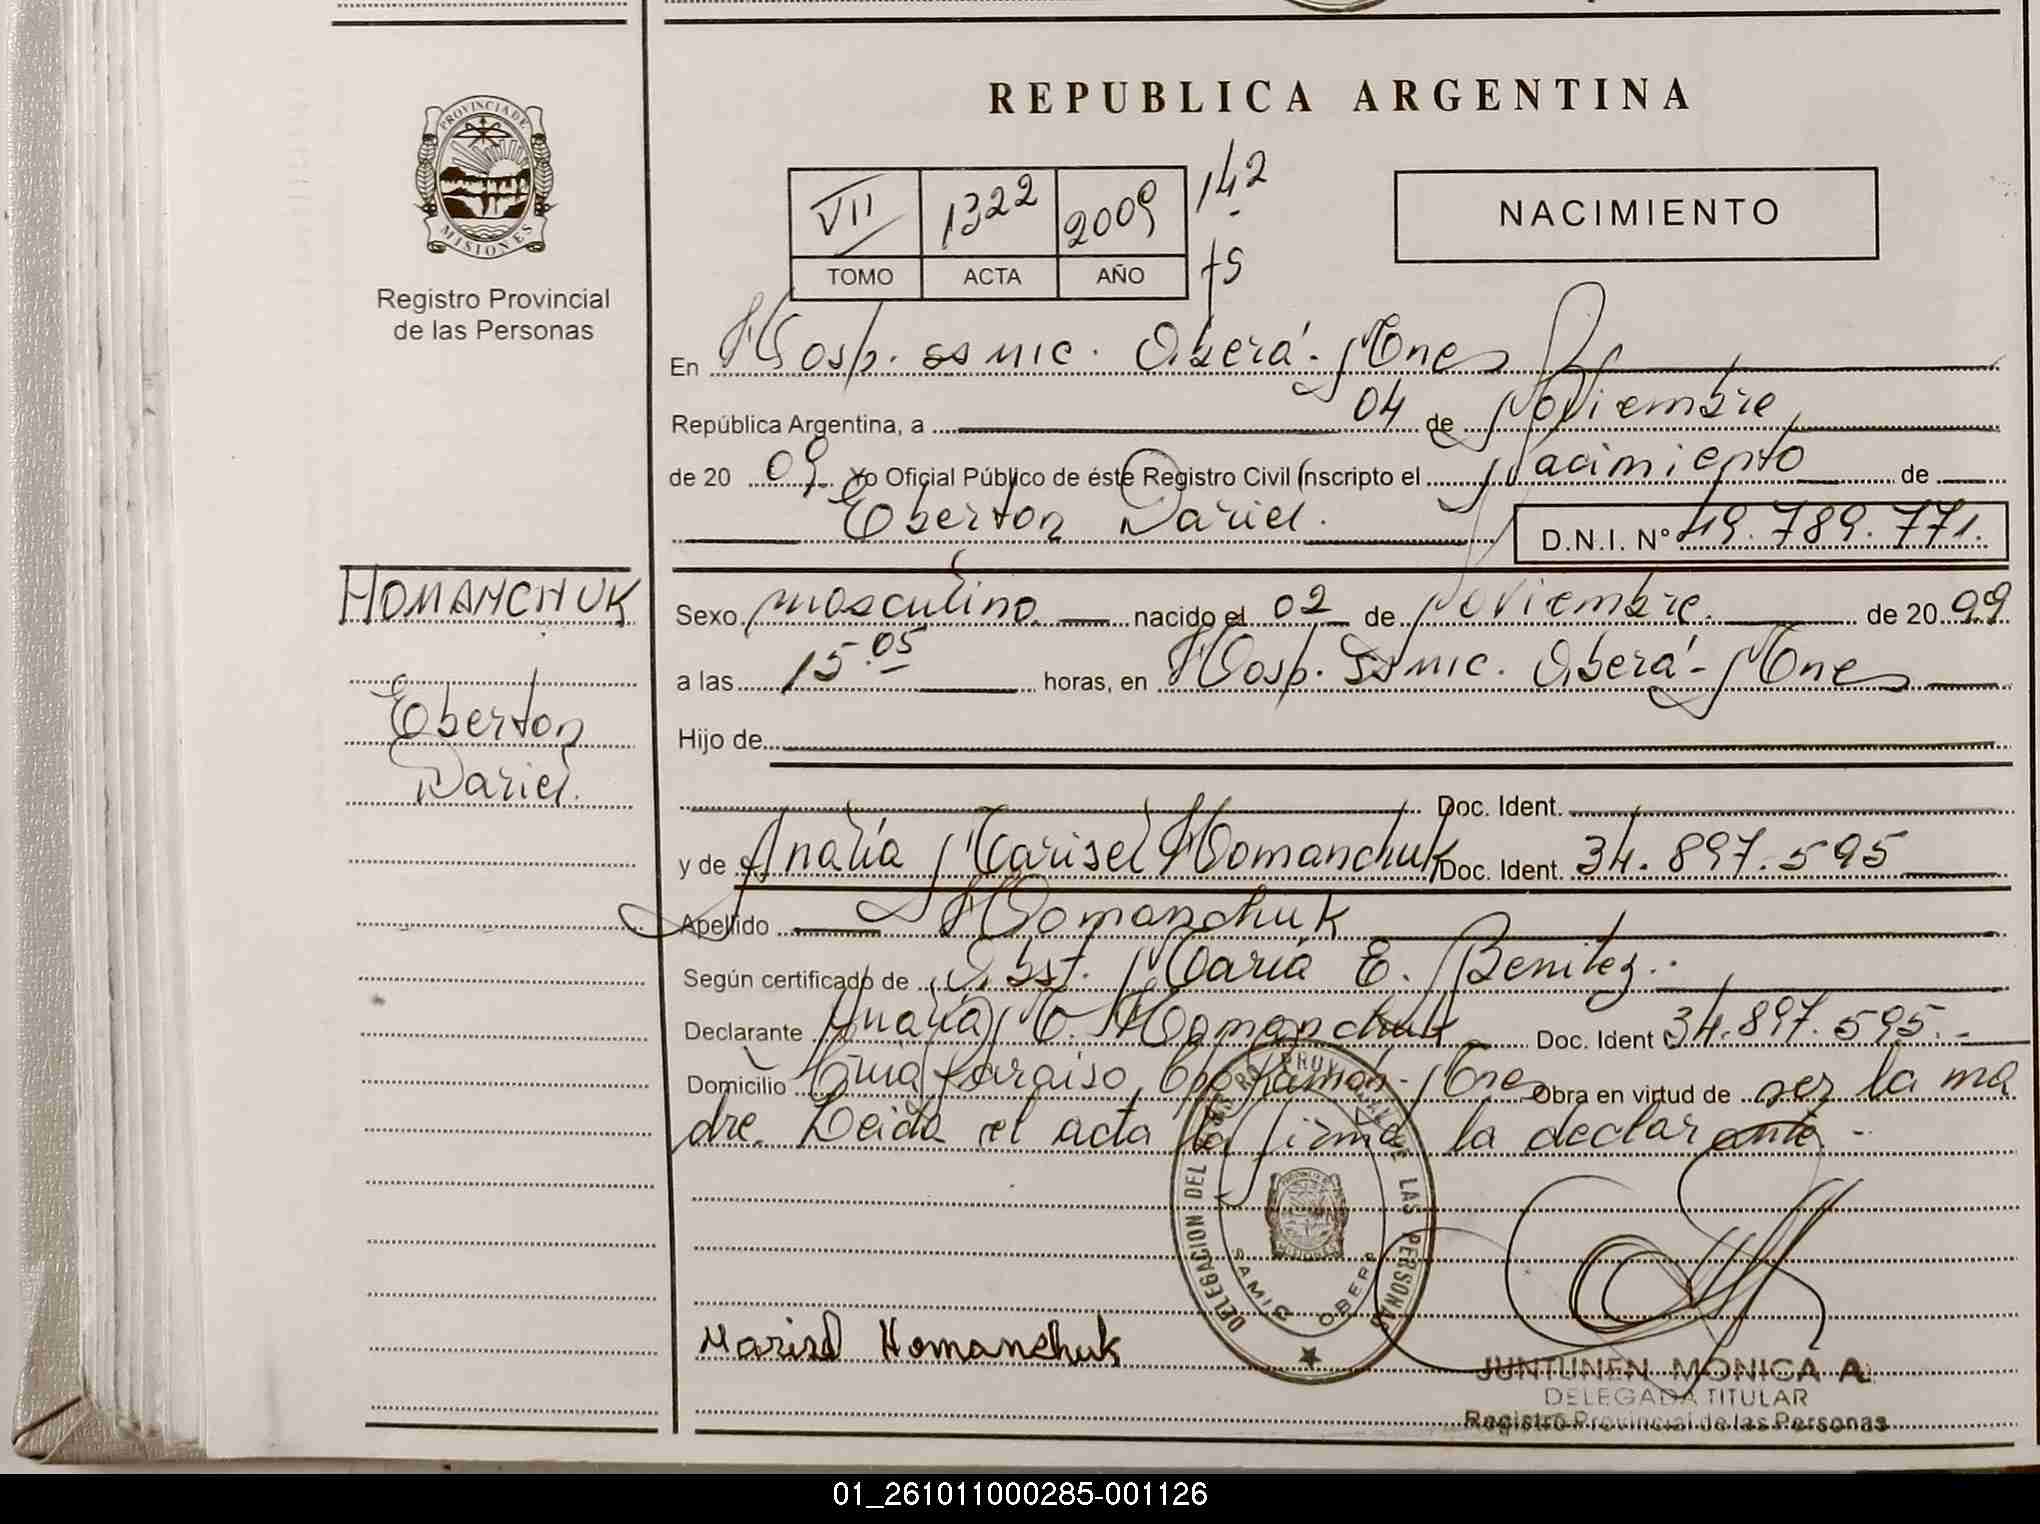 REPUBLICA ARGENTINA
PROVINCIA DE
MISIONES
Registro Provincial
de las Personas
VII 1322 2009 142
TOMO ACTA AÑO
NACIMIENTO
En Hosp. ss mic. Oberá - Mnes
República Argentina, a 04 de Noviembre
de 20 09 Yo Oficial Público de éste Registro Civil Inscripto el Nacimiento de
Eberton Dariel.
D.N.I. Nº 49.789.771.
HOMANCHUK
Eberton
Dariel.
Sexo masculino nacido el 02 de Noviembre. de 20 09
a las 15.05 horas, en Hosp. ss mic. Oberá - Mnes
Hijo de
Doc. Ident.
y de Analía Marisel Homanchuk Doc. Ident. 34.897.595
Apellido Homanchuk
Según certificado de Obst. María E. Benitez.
Declarante Analía M. Homanchuk Doc. Ident 34.897.595.-
Domicilio Paraiso, Cpo Ramón - Mnes Obra en virtud de ser la ma
dre. Leida el acta la firma la declarante.-
DELEGACION DEL REGISTRO PROVINCIAL DE LAS PERSONAS
MISIONES
SAMIC OBERA
Marisel Homanchuk
JUNTUNEN MONICA A.
DELEGADA TITULAR
Registro Provincial de las Personas
01_261011000285-001126